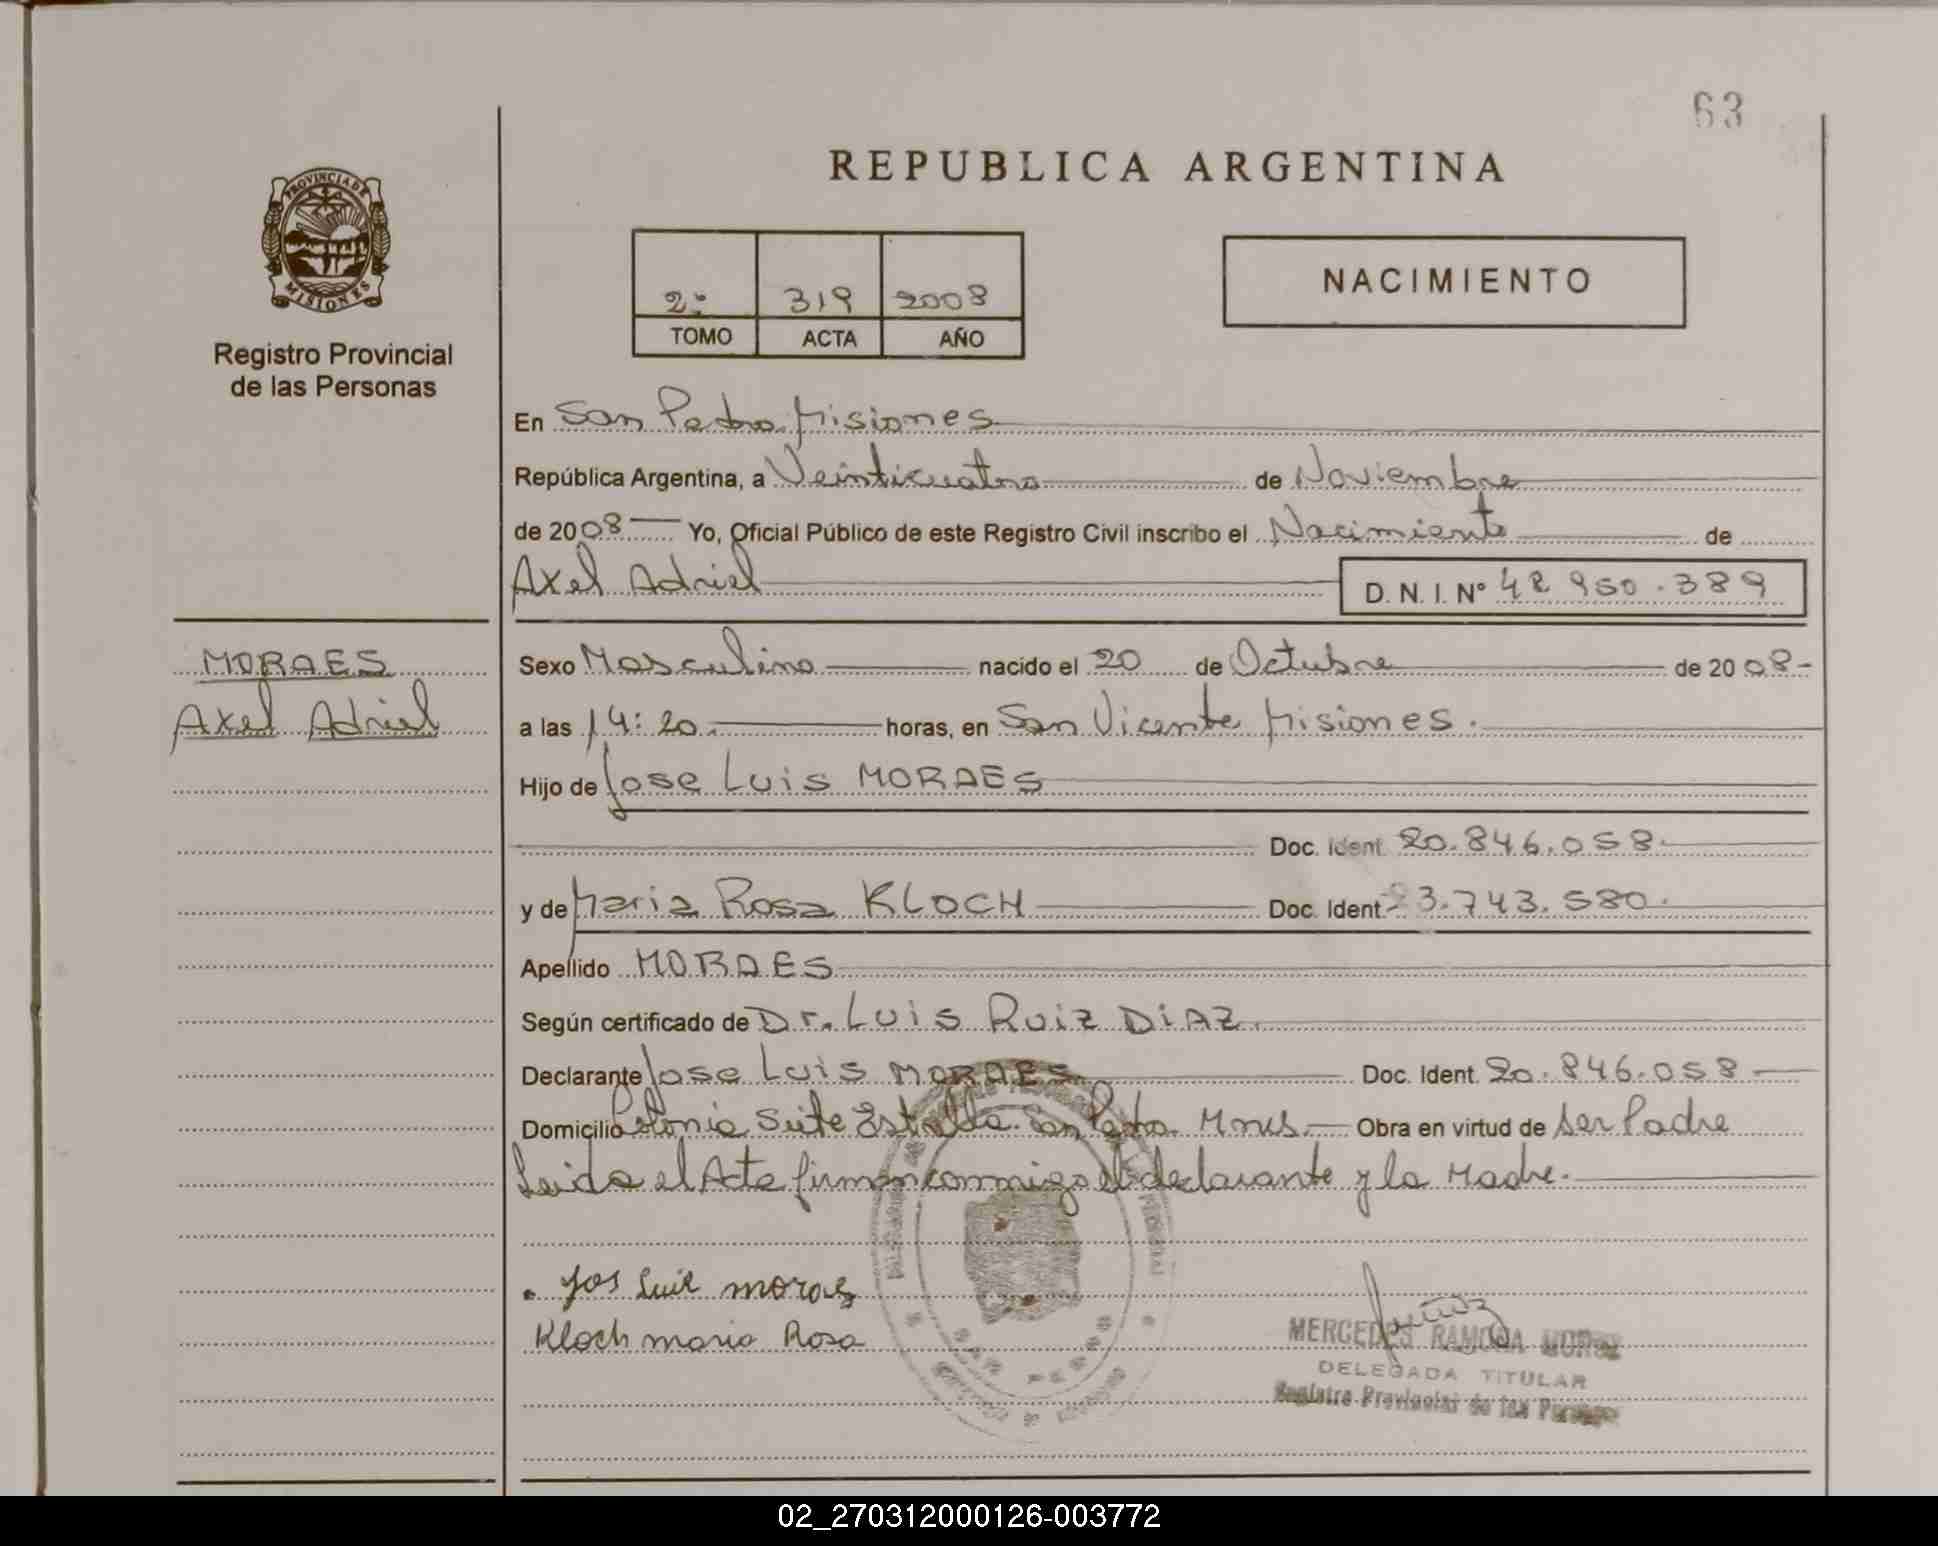 63
REPUBLICA ARGENTINA
PROVINCIA DE MISIONES
Registro Provincial
de las Personas
2º 319 2008
TOMO ACTA AÑO
NACIMIENTO
En San Pedro Misiones
República Argentina, a Veinticuatro de Noviembre
de 2008 Yo, Oficial Público de este Registro Civil inscribo el Nacimiento de
Axel Adriel D. N. I. Nº 48 950.389
MORAES
Axel Adriel
Sexo Masculino nacido el 20 de Octubre de 2008-
a las 14:20. horas, en San Vicente Misiones.
Hijo de Jose Luis MORAES
Doc. Ident. 20.846.058
y de Maria Rosa KLOCH Doc. Ident. 23.743.580.
Apellido MORAES
Según certificado de Dr. Luis Ruiz DiAZ.
Declarante Jose Luis MORAES Doc. Ident. 20.846.058
Domicilio Colonia Siete Estrella. San Pedro. Mnes. Obra en virtud de ser Padre
Leida el Acta firman conmigo el declarante y la Madre.
Jos Luis moraes
Kloch maria Rosa
MERCEDES RAMONA
DELEGADA TITULAR
Registro Provincial de las Personas
SAN PEDRO
02_270312000126-003772